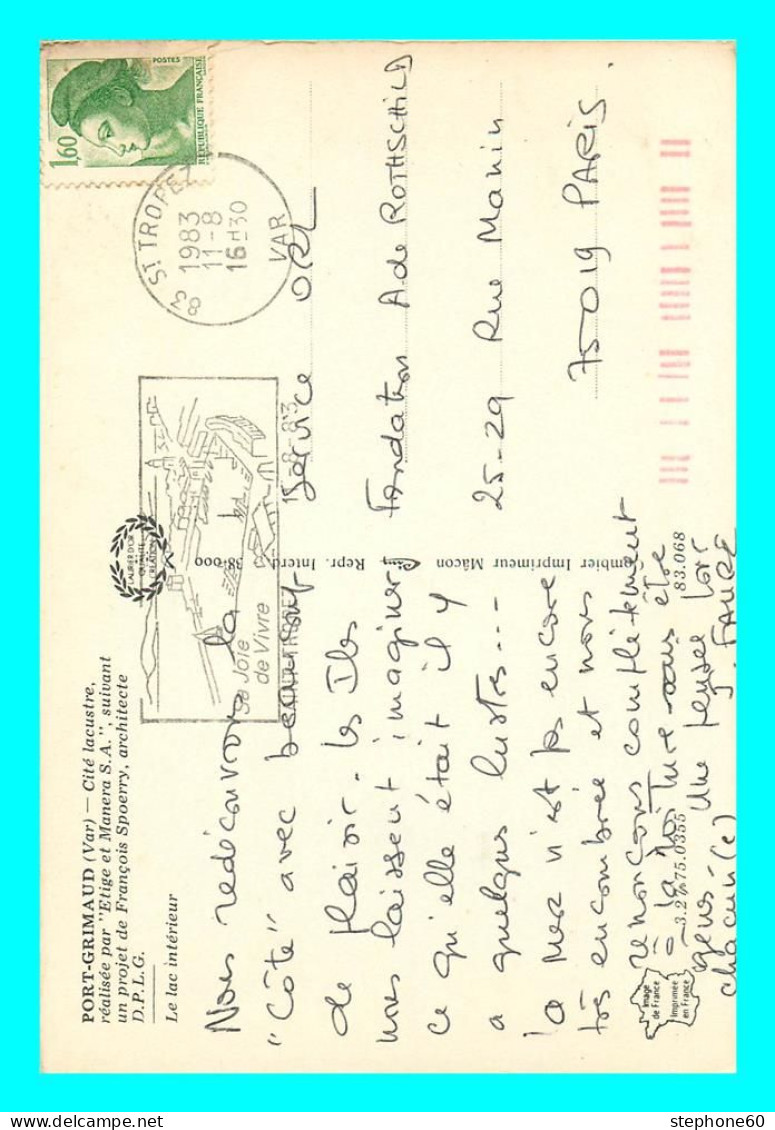 PORT-GRIMAUD (Var) — Cité lacustre,
réalisée par "Etige et Manera S.A.", suivant
un projet de François Spoerry, architecte
D.P.L.G.
Le lac intérieur
LAURIER D'OR
QUALITÉ
CRÉATION
POSTES
1,60
RÉPUBLIQUE FRANÇAISE
83 ST TROPEZ
1983
11-8
16H30
VAR
Sa Joie
de Vivre
Nous redécouvrons la
"Côte" avec beaucoup
de plaisir. les Iles
nous laissent imaginer
ce qu'elle était il y
a quelques lustres...
la mer n'est pas encore
très encombrée et nous
renonçons complètement
à la voiture sans être
Une pensée pour
chacun(e)
J. FAURE
Service ORL
Fondation A de ROTHSCHILD
25-29 Rue Manin
75019 PARIS.
38-000
Repr. Interd.
Combier Imprimeur Mâcon
83.068
3.26.75.0355
Image
de France
Imprimée
en France
stephone60